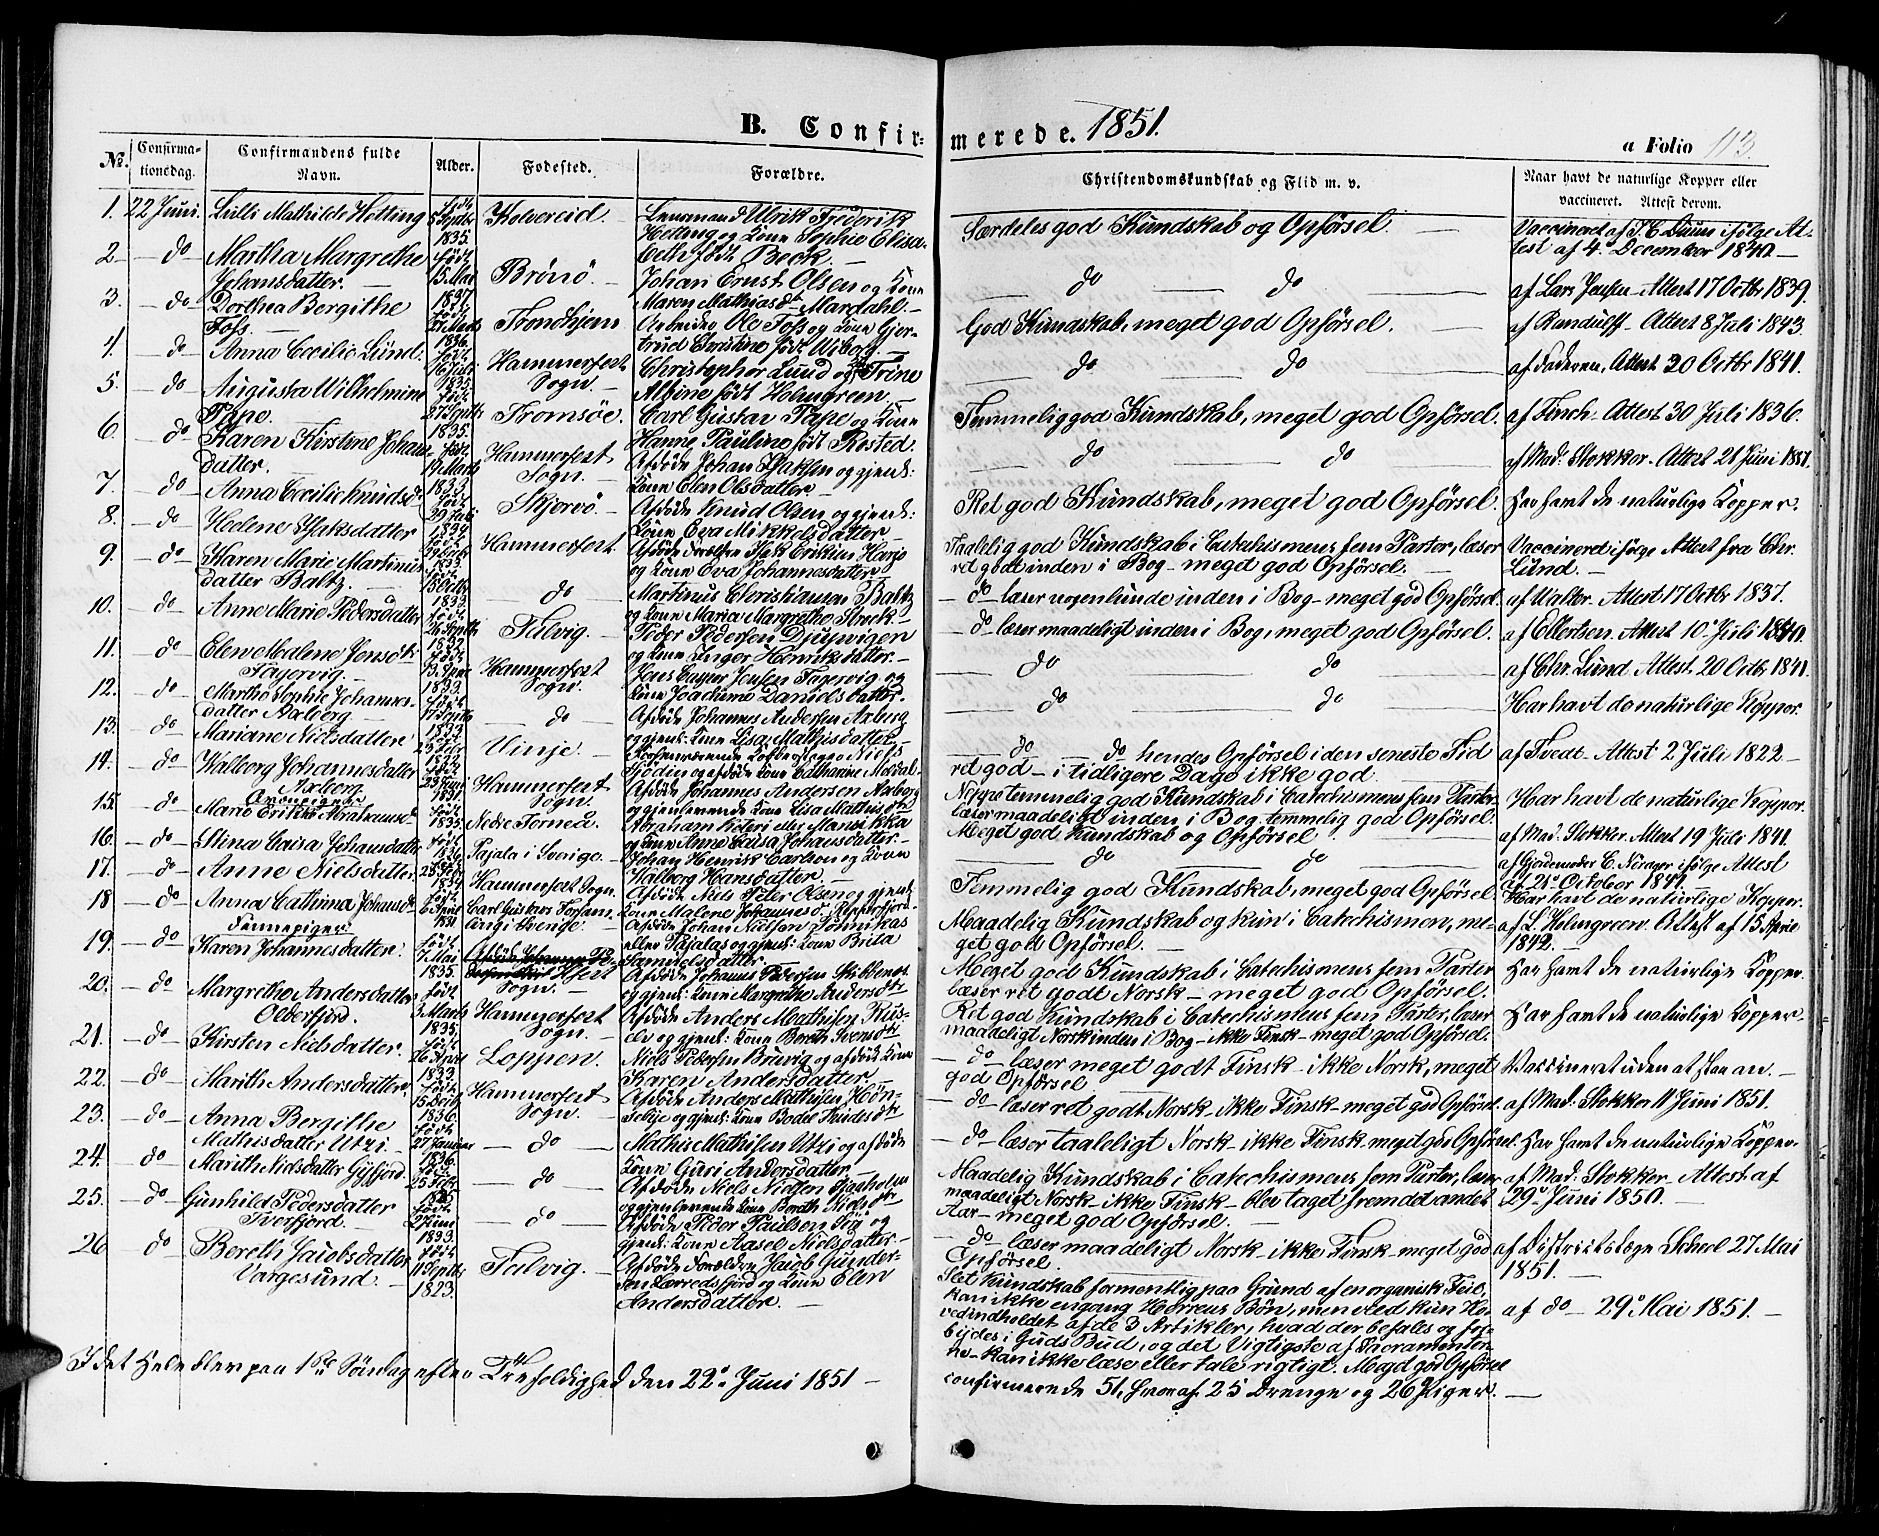 B. Confir-
merede. 1851.
a Folio 113
No.
Confirma-
tionsdag.
Confirmandens fulde
Navn.
Alder.
Fødested.
Forældre.
Christendomskundskab og Flid m. v.
Naar havt de naturlige Kopper eller
vaccineret. Attest derom.
1. 22 Juni. Lulli Mathilde Hetting født 1835. Kolvereid. Lensmand Ulrik Frederik
Hetting og Kone Sophie Elisa-
beth født Beck. Særdeles god Kundskab og Opførsel. Vaccinered af ifølge At-
test af 4de December 1840
2 do Martha Margrethe
Johansdatter. født 15 Mai 1837. Brønø. Johan Ernst Olsen og Kone
Maren Mathiasdr Mardahl. do do af Lars Jensen Attest 17 Octbr 1839.
3. do Dorthea Bergithe
Foss. født Marts 1836. Trondhjem Arbeider Ole Foss og Kone Gjer-
trud Christine født Wiborg God Kundskab, meget god Opførsel. af Randulff Attest 8 Juli 1843.
4. do Anna Cecilie Lund. født 1835. Hammerfest
Sogn. Christopher Lund og Trine
Albine født Holmgreen do do af Faderen, Attest 20 Octbr 1841.
5. do Augusta Wilhelmine
Pape. født Septbr 1835. Tromsøe. Carl Gustav Pape og Kone
Hanne Pauline født Rosted. Temmelig god Kundskab, meget god Opførsel. af Finch. Attest 30 Juli 1836.
6. do Karen Kirstene Johans-
datter. født Marts 1833 Hammerfest
Sogn. Afdøde Johan Isaksen og gjenl:
Kone Elen Olsdatter do do af Mad: Stokker. Attest 21 Juni 1851.
7. do Anna Cecilie Knudsdr født 1834 Skjervø. Afdøde Knud Olsen og gjenl:
Kone Eva Mikkelsdatter Ret god Kundskab, meget god Opførsel. Har havt de naturlige Kopper.
8. do Helene Isaksdatter født 1833. Hammerfest Afdøde Forældre Isak Eriksen Harjo
og Kone Eva Johannesdatter Taalelig god Kundskab i Catechismens fem Parter, læser
ret godt inden i Bog - meget god Opførsel. Vaccinered ifølge Attest fra Chr.
Lund.
9. do Karen Marie Martinus
datter Baltz. født Octbr 1833 do Martinus Christiansen Baltz
og Kone Maria Margrethe Brock. do læser nogenlunde inden i Bog - meget god Opførsel. af Walter. Attest 17 Octbr 1837.
10. do Anne Marie Pedersdatter født Septbr 1834 Talvig. Peder Pedersen Djupvigen
og Kone Inger Henriksdatter. do læser maadeligt inden i Bog, meget god Opførsel. af Ellertsen. Attest 10de Juli 1840.
11. do Elen Malene Jensdr
Fagervig. født 1833. Hammerfest
Sogn. Jens Casper Jensen Fagervig og
Kone Joachime Danielsdatter. do do af Chr. Lund Attest 20 Octbr 1841.
12. do Marthe Sophie Johannes-
datter Axberg født 17 Septbr 1833 do Afdøde Johannes Andersen Axberg
og gjenl: Kone Lisa Mathisdatter do do Har havt de naturlige Kopper.
13. do Mariane Nielsdatter født 1834 Vinje. Niels
Sjødin og afdøde Kone Catharine do do hendes Opførsel i den seneste Tid
ret god - i tidligere Dage ikke god af Tvedt. Attest 2 Juli 1822
14. do Walborg Johannesdatter
Axberg født 23 1834 Hammerfest
Sogn. Afdøde Johannes Andersen Axberg
og gjenlevende Kone Lisa Mathisdr Neppe temmelig god Kundskab i Catechismens fem Parter
læser maadeligt inden i Bog, temmelig god Opførsel. Har havt de naturlige Kopper.
15. do Marie Erikke Abrahamsd. født 1835 Nedre Torneå. Abraham Kiteri eller Mansikka
og Kone Anne Caisa Johansdatter. Meget god Kundskab og Opførsel af Mad. Stokker. Attest 19 Juli 1841.
16. do Stina Caisa Johansdatter født Pajala i Sverige. Johan Henrik Carlson og Kone
Walborg Hansdatter. do do af Gjordemoder C. Norager ifølge Attest
21de October 1841.
17. do Anne Nielsdatter født 1834 Hammerfest Sogn. Afdøde Niels Peter Olsen og gjenl:
Kone Malene Johannesdr Temmelig god Kundskab, meget god Opførsel Har havt de naturlige Kopper.
18 do Anna Cathrina Johansdr født 6 April Carl Gustavs Forsam-
ling i Sverige. Afdøde Johan Nielsen
eller Pajalas og gjenl: Kone Brita
Samuelsdatter. Maadelig Kundskab og kun i Catechismen, me-
get god Opførsel. af L. Holmgreen Attest af 15 Aprl
1842.
Finnepiger
19. do Karen Johannesdatter. født Mai 1835. Hfest
Sogn. Afdøde Johannes Pedersen
og gjenl: Kone Margrethe Andersdr Meget god Kundskab i Catechismens fem Parter
læser ret godt Norsk - meget god Opførsel. Har havt de naturlige Kopper.
20. do Margrethe Andersdatter
Olderfjord. født 3 Marts 1835. Hammerfest
Sogn. Afdøde Anders Mathisen Rus-
elv og gjenl: Kone Bereth Svensdr Ret god Kundskab i Catechismens fem Parter, læser
maadeligt Norsk inden i Bog - ikke Finsk - meget god Opførsel. Har havt de naturlige Kopper.
21. do Kirsten Nielsdatter. født 26 April 1833 Loppen. Niels Pedersen Bruvig og afdøde Kone
Karen Andersdatter. do læser meget godt Finsk - ikke Norsk, meget
god Opførsel Vaccineret uden at staae an.
22. do Marith Andersdatter født 15 Octbr 1836. Hammerfest
Sogn. Afdøde Anders Mathisen Høn-
og gjenl: Kone Bodel Knudsdr do læser ret godt Norsk - ikke Finsk - meget god Opførsel. af Mad: Stokker 11 Juni 1851.
23. do Anna Bergithe
Mathisdatter Utzi. født 27 Januar 1836. do Mathis Mathisen Utzi og afdøde
Kone Guri Andersdatter. do læser taaleligt Norsk - ikke Finsk - meget god Opførsel. Har havt de naturlige Kopper.
24. do Marith Nielsdatter født 25 Febr 1835 do Afdøde Niels Nielsen
og gjenlevende Kone Bereth Nielsdr Maadelig Kundskab i Catechismens fem Parter, læser
maadeligt Norsk - ikke Finsk - blev taget frem det andet
Aar - meget god Opførsel. af Mad: Stokker Attest af
29de Juni 1850.
25. do Gunhild Pedersdatter
Tverfjord. født Juni 1833. do Afdøde Peder Paulsen og
gjenl: Kone Aasel Nielsdatter do læser maadeligt Norsk - ikke Finsk - meget god
Opførsel. af Districtslæge Scheel 27 Mai
1851.
26 do Bereth Jacobsdatter
Vargesund. født 11 Septbr 1823. Talvig. Afdøde Forældre Jacob Gunder-
sen Lerredsfjord og Kone Elen
Andersdatter. Slet Kundskab formentlig paa Grund af en organisk Feil,
kan ikke engang Herrens Bøn, men ved kun Ho-
vedindholdet af de 3 Artikler, hvad der befales og for-
bydes i Guds Bud, og det Vigtigste af Sacramenter-
ne - kan ikke læse eller tale rigtigt. Meget god Opførsel af do 29de Mai 1851.
I det Hele blev paa 1ste Søndag efter Trefoldighed den 22de Juni 1851
confirmerede 51, hvoraf 25 Drenge og 26 Piger.